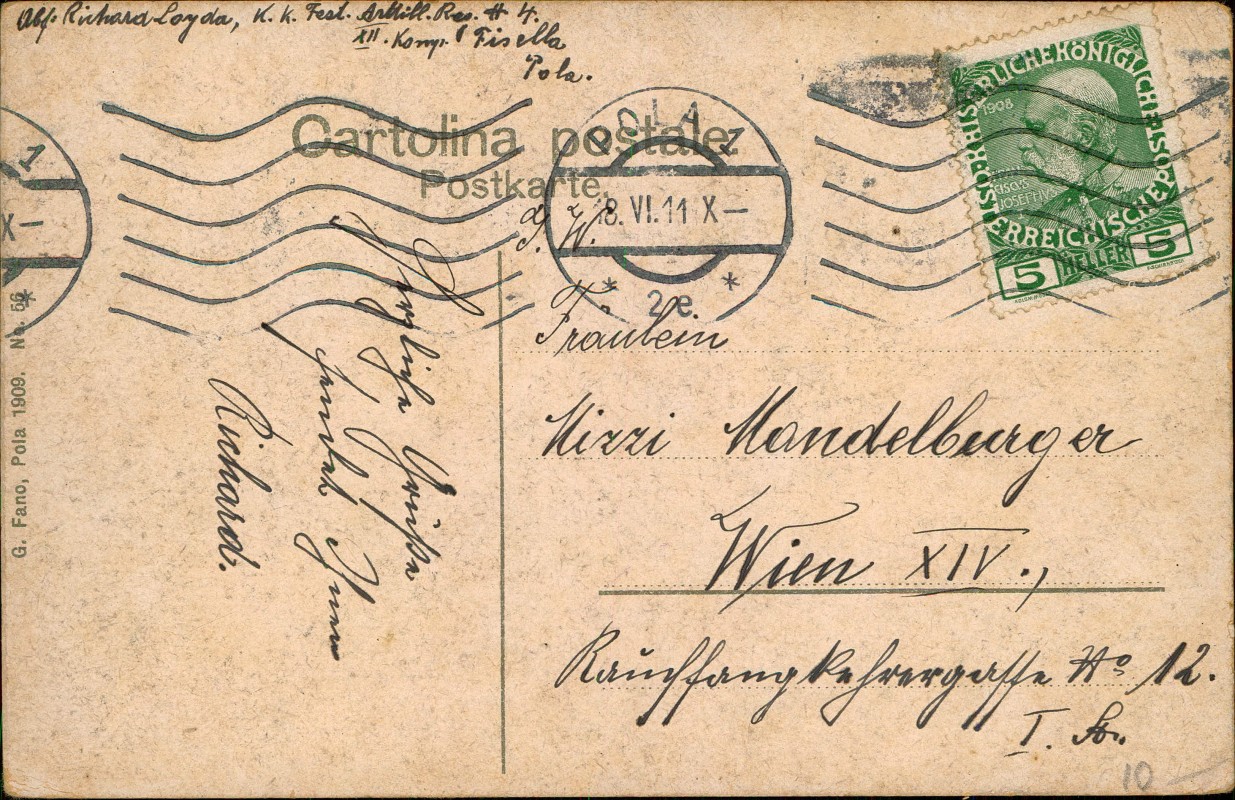 Abs. Richard Loyda, K. k. Fest. Artill. Reg. # 4.
XII. Komp. Fisella
Pola.
Cartolina postale
Postkarte.
POLA 1
8. VI. 11 X—
* 2e *
1
X—
*
KAISERLICHE KÖNIGLICHE ÖSTERREICHISCHE POST
1908
5 HELLER 5
Fräulein
Mizzi Mandelburger
Wien XIV.,
Rauchfangkehrergasse No 12.
I. St.
Herzliche Grüße
sendet Ihnen
Richard.
G. Fano, Pola 1909. No. 56
10